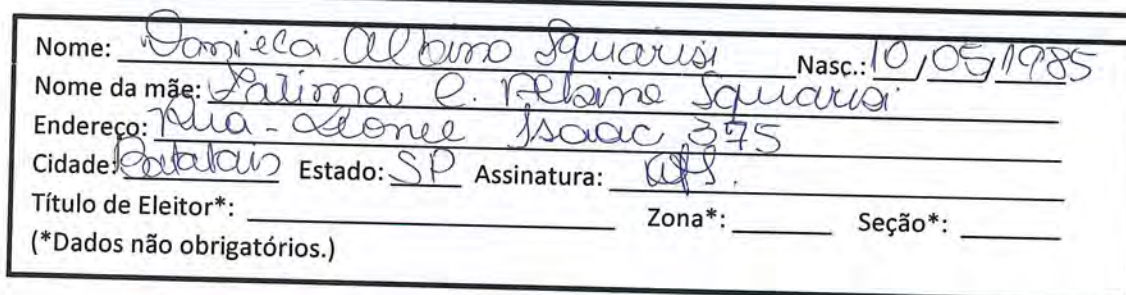 Nome: Daniela Albino Squarisi Nasc.: 10/05/1985
Nome da mãe: Fatima C. Albino Squarisi
Endereço: Rua - Leonel Isaac 375
Cidade: Batatais Estado: SP Assinatura:
Título de Eleitor*: Zona*: Seção*:
(*Dados não obrigatórios.)